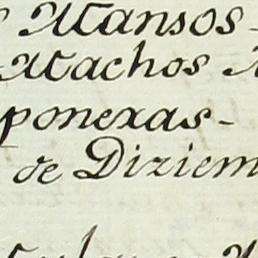 Mansos-
Machos
ponexas-
de Diziem